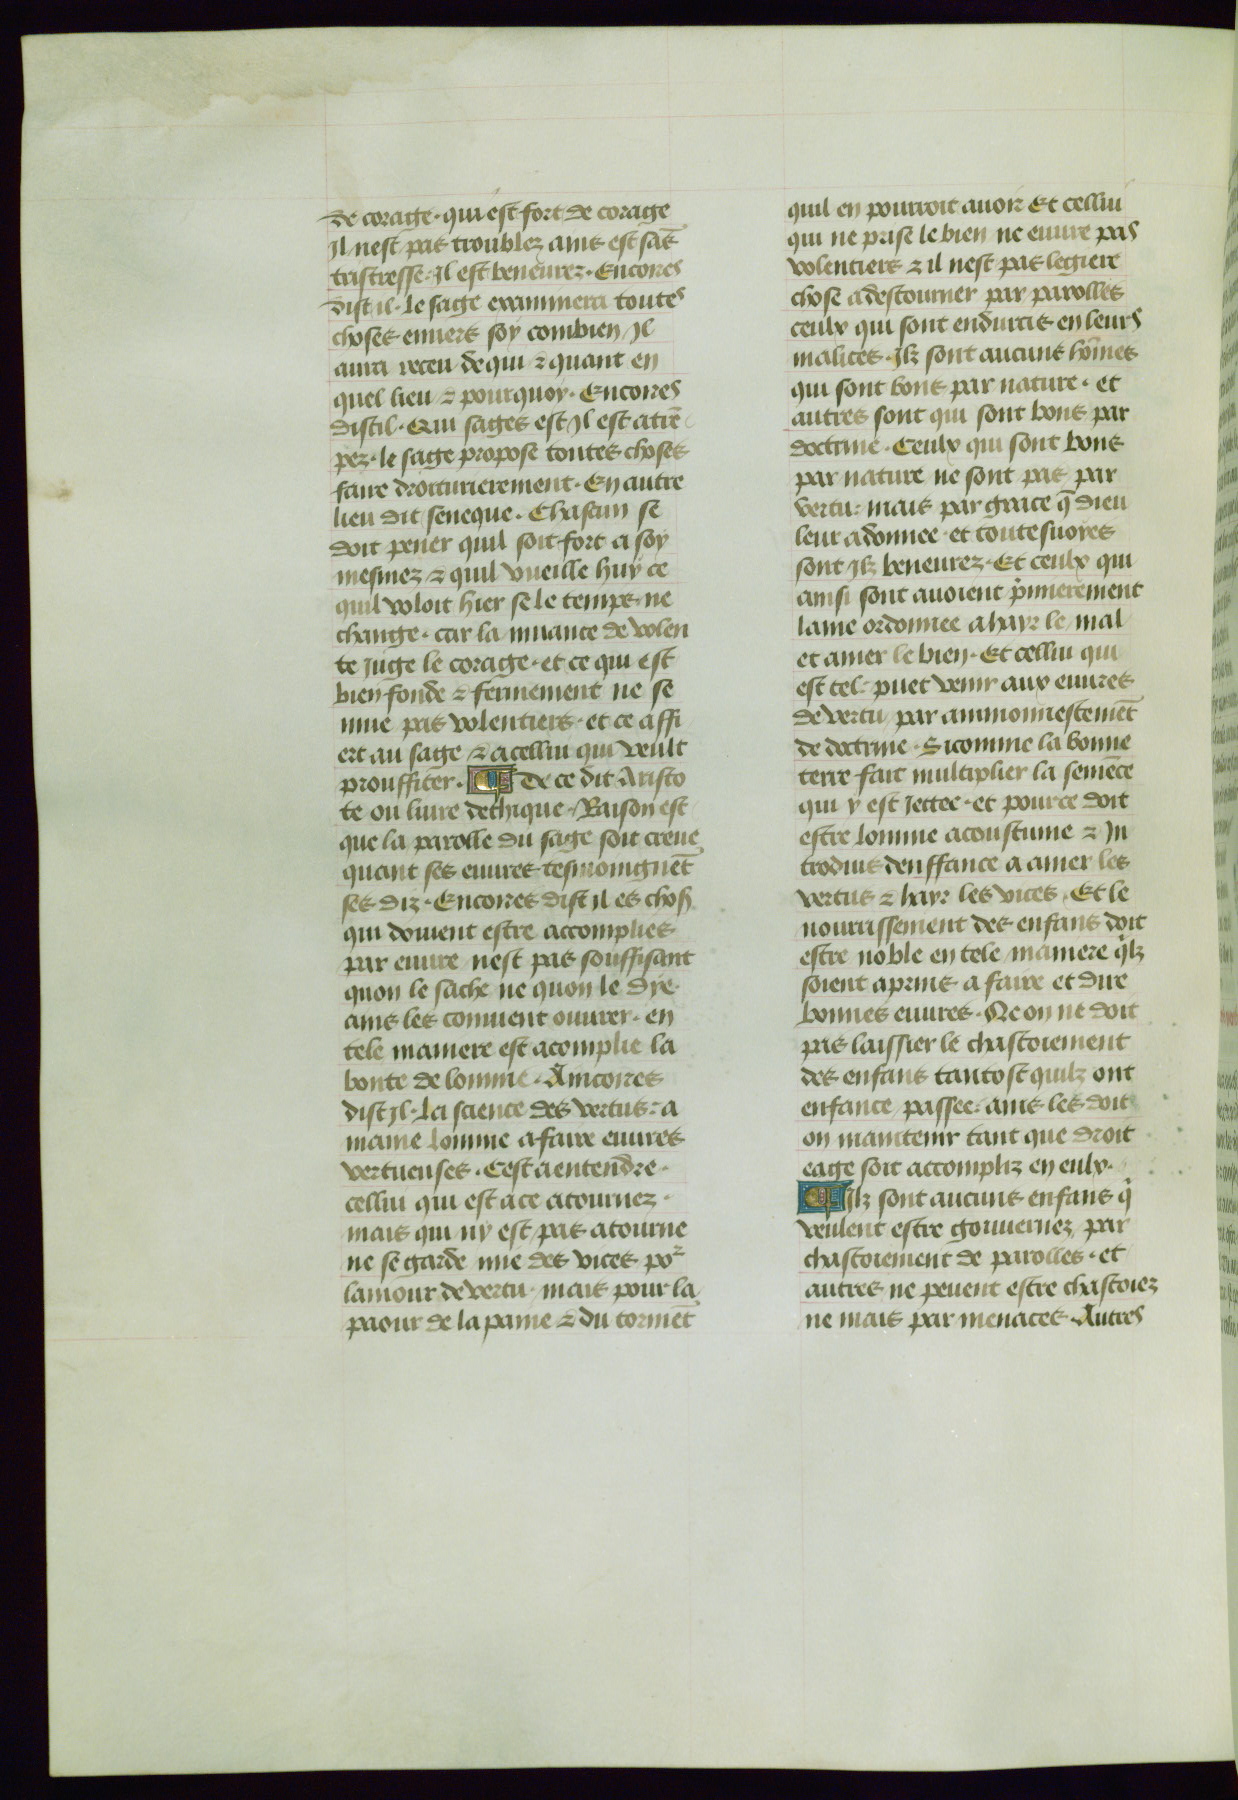 de corage · qui est fort de corage
Il nest pas troublez ains est sās
tristresse · Il est beneurez · Encores
dist il · le sage examinera toutes
choses enuers soy combien / Il
aura receu / de qui / ⁊ quant en
quel lieu / ⁊ pourquoy · Encores
dist il · Qui sages est / Il est atrē
pez · le sage propose toutes choses
faire droitturierement · En autre
lieu dit seneque · Chascun se
doit pener quil soit fort a soy
mesmez ⁊ quil vueille huy ce
quil voloit hier se le temps ne
change · car la muance de volen
te Juge le corage · et ce qui est
bien fonde ⁊ fermement ne se
mue pas volentiers · et ce affi
ert au sage / ⁊ a cellui qui veult
prouffiter · De ce dit Aristo
te ou liure dethique · Raison est
que la parolle du sage soit creue
quant ses euures tesmoingnēt
ses diz · Encores dist il es chos
qui doiuent estre accomplies
par euure nest pas souffisant
quon le sache ne quon le dye ·
ains les conuient ouurer · en
tele maniere est acomplie la
bonte de lomme · Aincores
dist Il · La science des vertus : a
maine lomme a faire euures
vertueuses · Cest a entendre ·
cellui qui est a ce atournez ·
mais qui ny est pas atourne
ne se garde mie des vices por
lamour de vertu · mais pour la
paour de la paine ⁊ du tormēt
quil en pourroit auoir Et cellui
qui ne prise le bien ne euure pas
volentiers ⁊ il nest pas legiere
chose a destourner par parolles
ceulx qui sont endurcis en leurs
malices · Ilz sont aucuns hōmes
qui sont bons par nature · et
autres sont qui sont bons par
doctrine · Ceulx qui sont bons
par nature ne sont pas par
vertu : mais par grace q̄ dieu
leur a donnee · et toutesuoyes
sont Ilz beneurez · Et ceulx qui
ainsi sont auoient p̄mierement
lame ordonnee a hayr le mal
et amer le bien · Et cellui qui
est tel : puet venir aux euures
de vertu par ammonnestemēt
de doctrine · Sicomme la bonne
terre fait multiplier la semēce
qui y est Jettee · et pource doit
estre lomme acoustume ⁊ In
troduis denffance a amer les
vertus ⁊ hayr les vices · Et le
nourrissement des enfans doit
estre noble en tele maniere q̄lz
soient aprins a faire et dire
bonnes euures · Ne on ne doit
pas laissier le chastoiement
des enfans tantost quilz ont
enfance passee : ains les doit
on maintenir tant que droit
eage soit accompliz en eulx ·
Ilz sont aucuns enfans q̄
veulent estre gouuernez par
chastoiement de parolles · et
autres ne peuent estre chastoiez
ne mais par menaces · Autres